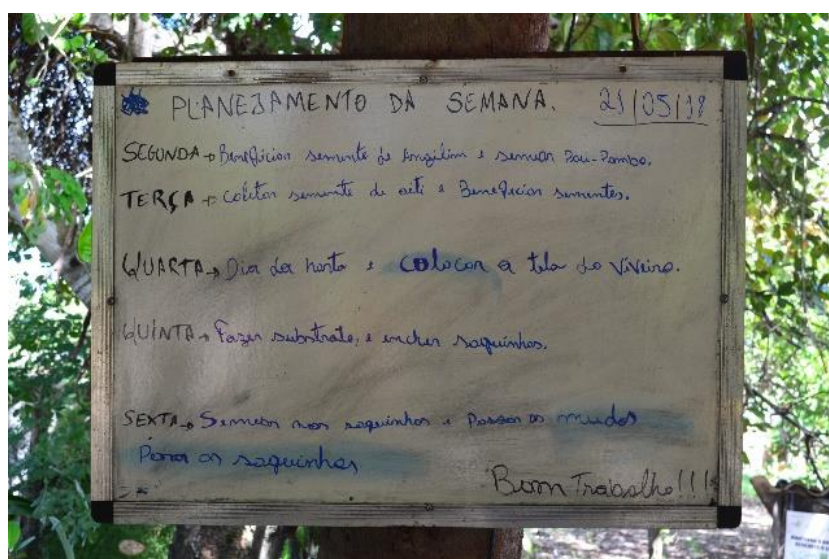 PLANEJAMENTO DA SEMANA. 21/05/18
SEGUNDA → Beneficiar semente de Angilim e semear Pau-Pombo.
TERÇA → Coletar semente de oiti e Beneficiar sementes.
QUARTA → Dia da horta e colocar a tela do viveiro.
QUINTA → Fazer substrato, e encher saquinhos.
SEXTA → Semear nos saquinhos e Passar as mudas
Para os saquinhos
Bom Trabalho!!!